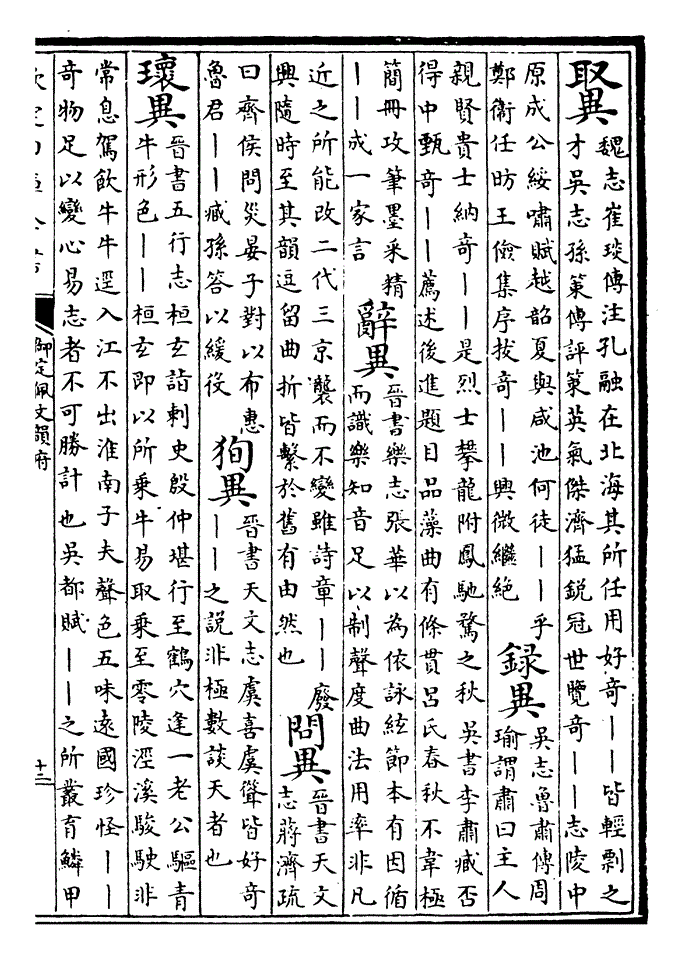 取異
魏志崔琰傳注孔融在北海其所任用好奇——皆輕剽之
才吳志孫策傳評策英氣傑濟猛銳冠世覽奇——志陵中
原成公綏嘯賦越韶夏與咸池何徒——乎
鄭衛任昉王儉集序拔奇——興微繼絶
録異
吳志魯肅傳周
瑜謂肅曰主人
親賢貴士納奇——是烈士攀龍附鳳馳騖之秋 吳書李肅臧否
得中甄奇——薦述後進題目品藻曲有條貫呂氏春秋不韋極
簡冊攻筆墨采精
——成一家言
辭異
晉書樂志張華以為依詠絃節本有因循
而識樂知音足以制聲度曲法用率非凡
近之所能改二代三京襲而不變雖詩章——廢
興隨時至其韻逗留曲折皆繫於舊有由然也
問異
晉書天文
志蔣濟疏
曰齊侯問災晏子對以布惠
魯君——臧孫答以緩役
徇異
晉書天文志虞喜虞聳皆好奇
——之說非極數談天者也
瓌異
晉書五行志桓玄詣刺史殷仲堪行至鶴穴逢一老公驅青
牛形色——桓玄即以所乘牛易取乘至零陵涇溪駿駛非
常息駕飲牛牛逕入江不出淮南子夫聲色五味遠國珍怪——
奇物足以變心易志者不可勝計也吳都賦——之所叢育鱗甲
御定佩文韻府
十三